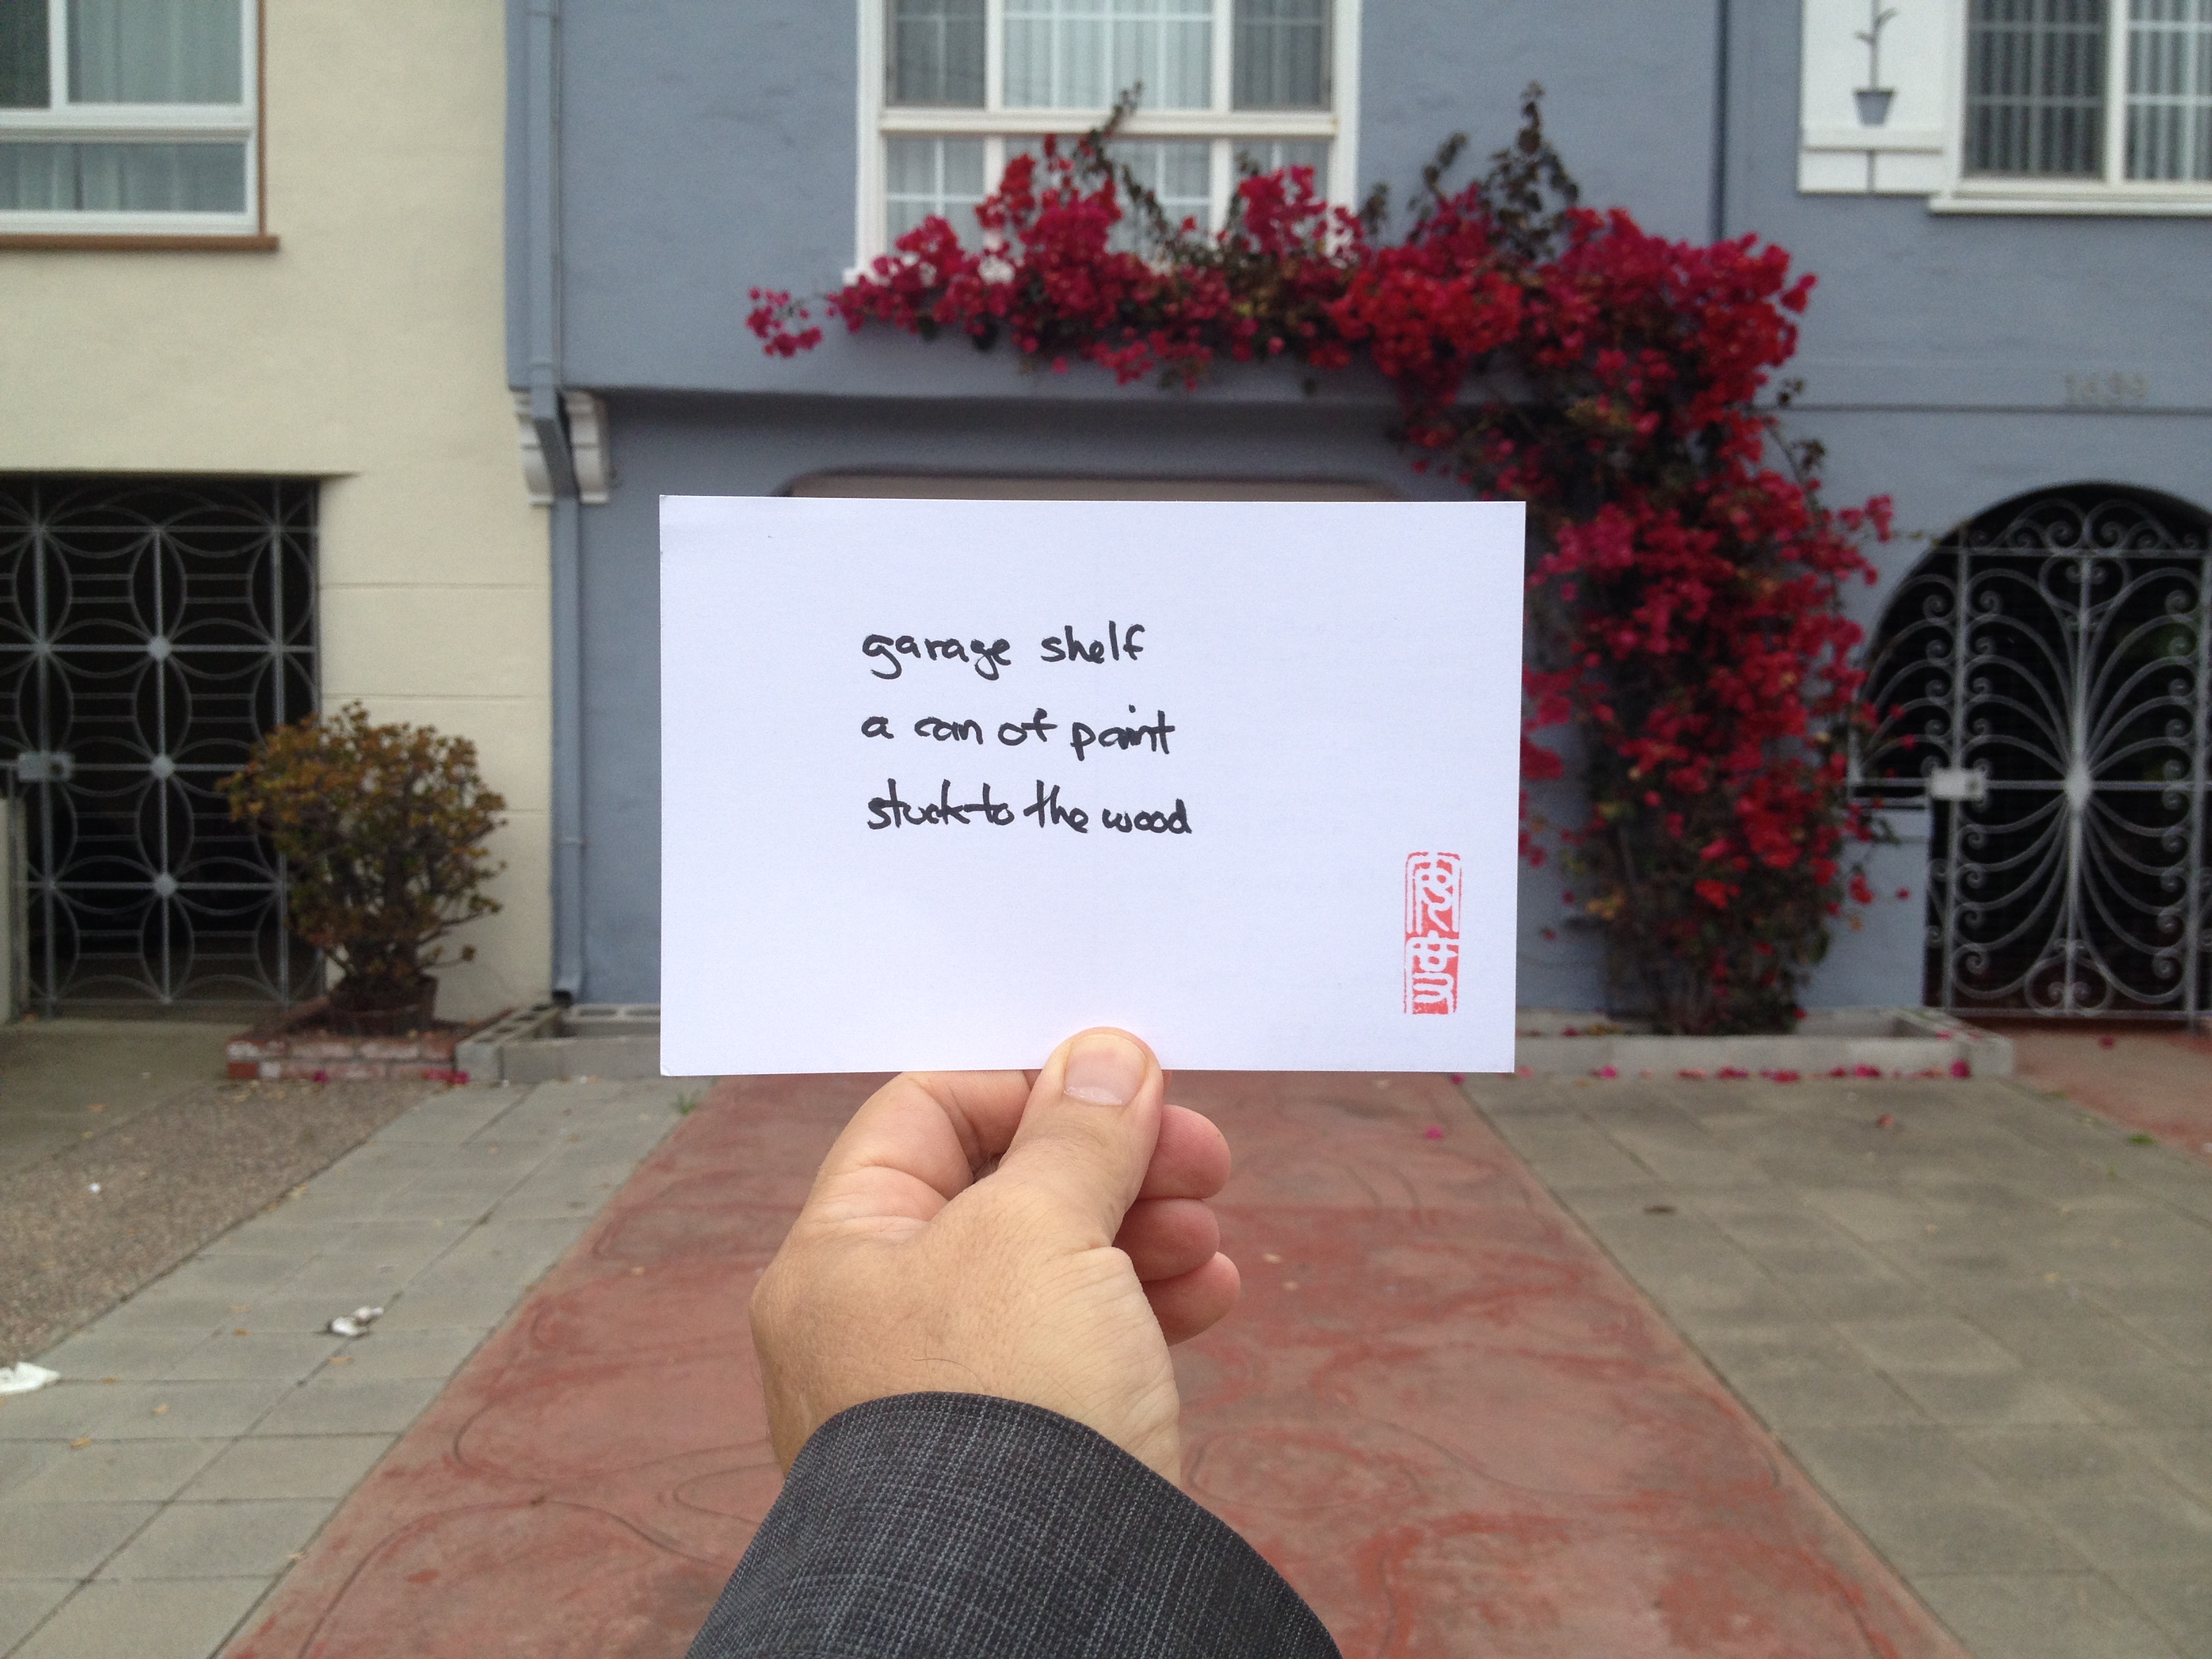 1639
garage shelf
a can of paint
stuck to the wood